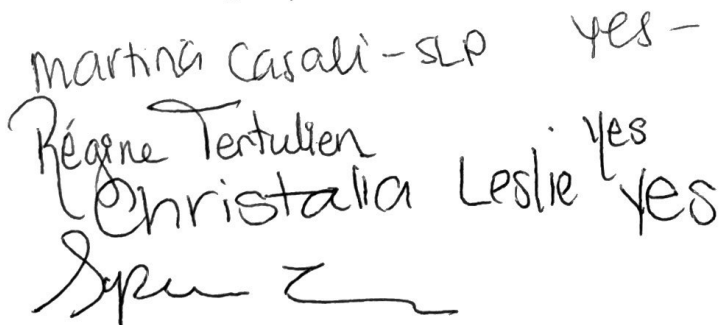 Martina Casali - SLP yes -
Régine Tertulien yes
Christalia Leslie yes